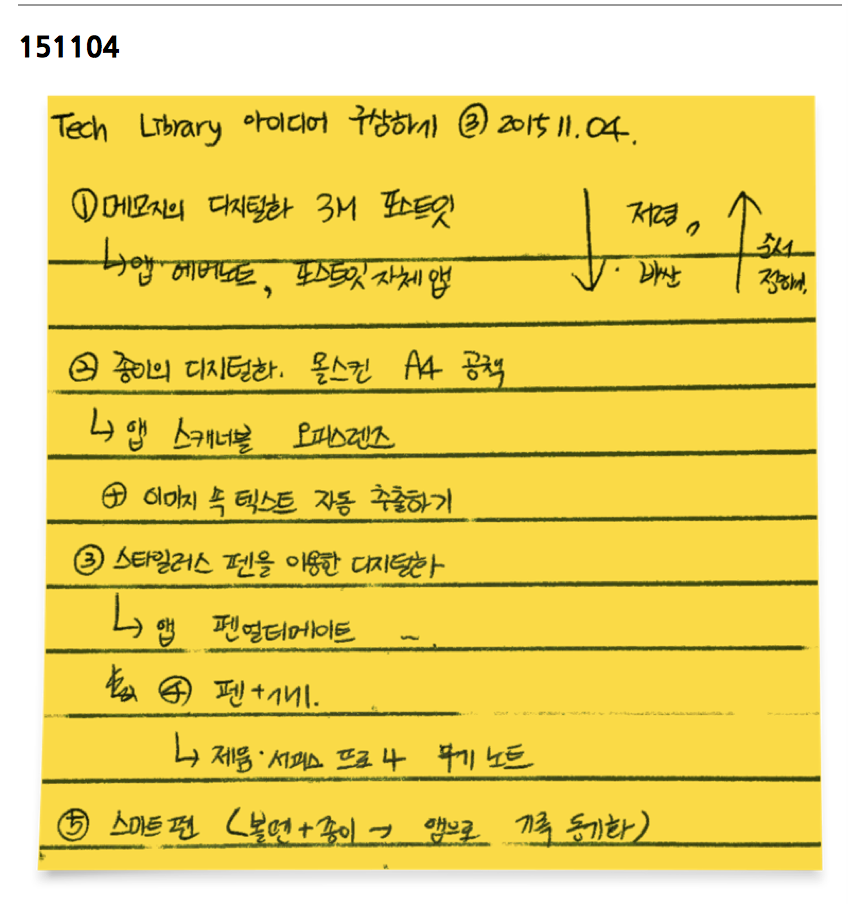 151104
Tech Library 아이디어 구상하기 ③ 2015 11. 04.
① 메모지의 디지털화 3M 포스트잇
↳ 앱 에버노트, 포스트잇 자체 앱
↓ 저렴, 비싼 ↑ 순서
② 종이의 디지털화. 몰스킨 A4 공책
↳ 앱 스캐너블 오피스렌즈
⊕ 이미지 속 텍스트 자동 추출하기
③ 스타일러스 펜을 이용한 디지털화
↳ 앱 펜얼티메이트 ~.
④ 펜+기기.
↳ 제품·서피스 프로 4 노트
⑤ 스마트펜 (볼펜+종이 → 앱으로 기록 동기화)